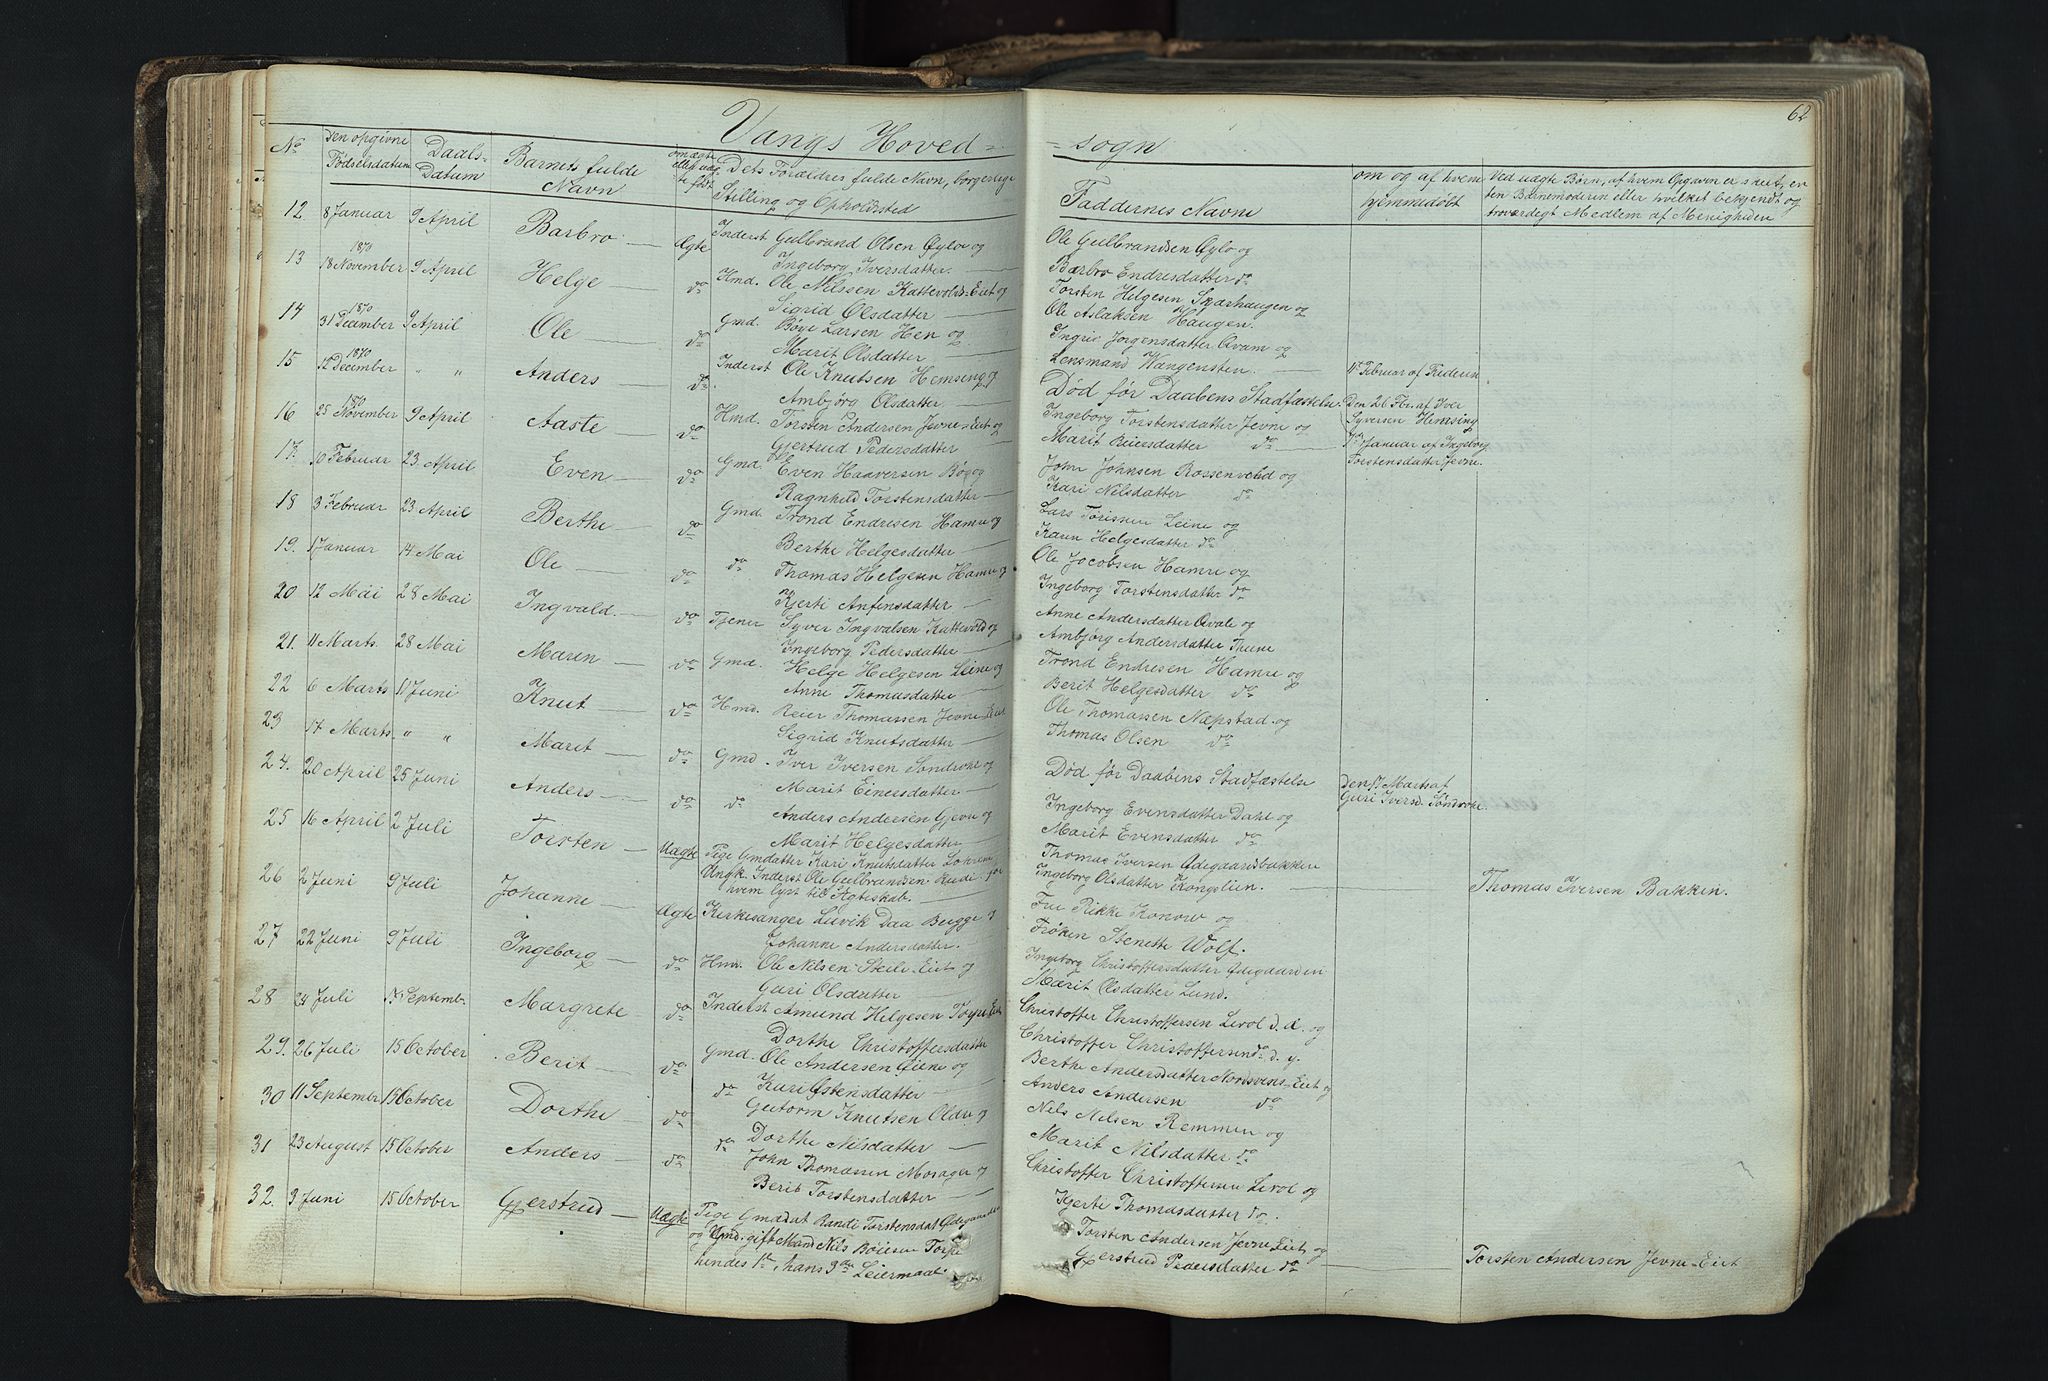 62
Vangs Hoved=
=sogn
No
den opgivne
Fødselsdatum
Daabs-
Datum
Barnets fulde
Navn
om ægte
eller uæg-
te født
Dets Forældres fulde Navn, borgerlige
Stilling og Opholdsted
Faddernes Navne
om og af hvem
hjemmedøbt
Ved uægte Børn, af hvem Opgaven er skeet, en-
ten Barnemoderen eller hvilket bekjendt og
troværdigt Medlem af Menigheden
12. 8 Januar 9 April Barbro Ægte Inderst Gulbrand Olsen Øylo og
Ingeborg Iversdatter.
Ole Gulbrandsen Øylo og
Barbro Endresdatter do
13 18 November 1870 9 April Helge do Hmd. Ole Nilssen Kattevolds-Eiet og
Sigrid Olsdatter
Torsten Helgesen Skarhaugen og
Ole Aslaksen Haugen.
14 31 December 1870 9 April Ole do Gmd. Bøye Larsen Hen og
Marit Olsdatter
Ingrid Jørgensdatter Qvam og
Lensmand Wangensten.
15 12 December 1870 " " Anders do Inderst Ole Knutsen Hemsing og
Ambjørg Olsdatter
Død før Daabens Stadfæstelse.
Den 26 Fbr. af Iver
Syversen Hemsing
16 25 November 1870 9 April Aaste do Hmd. Torsten Andersen Jevne-Eiet og
Gjertrud Pedersdatter
Ingeborg Torstensdatter Jevne og
Marit Reiersdatter do
Januar af Ingeborg
Torstensdatter Jevne.
17. 10 Februar 23. April Even do Gmd. Even Haaversen Bøe og
Ragnhild Torstensdatter
John Johnsen Rossenvold og
Kari Nilsdatter do
18 3 Februar 23 April Berthe do Gmd Trond Endresen Hamre og
Berthe Helgesdatter
Lars Torissen Leine og
Karen Helgesdatter do
19. 1 Januar 14 Mai Ole do do Thomas Helgesen Hamre og
Kjerti Anfinsdatter
Ole Jocobsen Hamre og
Ingeborg Torstensdatter do
20 12 Mai 28 Mai Ingvald. do Tjener Syver Ingvalsen Kattevold og
Ingeborg Pedersdatter
Anne Andersdatter Qvale og
Ambjørg Andersdatter Thune
21. 11 Marts. 28 Mai Maren do Gmd. Helge Helgesen Leine og
Anne Thomasdatter
Trond Endresen Hamre og
Berit Helgesdatter do
22 6 Marts 11 Juni Knut do Hmd. Reier Thomassen Jevne-Eiet
Sigrid Knutsdatter
Ole Thomassen Næpstad og
Thomas Olsen do
23 17 Marts. " " Marit do Gmd. Iver Iversen Søndrohe og
Marit Einersdatter
Død før Daabens Stadfæstelse
Marts af
Guri Iversd. Søndrohe.
24. 20 April 25 Juni Anders do do Anders Andersen Gjevre og
Marit Helgesdatter
Ingeborg Evensdatter Dahl og
Marit Evensdatter do
25 16 April 2 Juli Torsten Uægte Pige Gmdatter Kari Knutsdatter Lohrene
Ungk. Inderst Ole Gulbrandsen Rudi for
hvem lyst til Ægteskab.
Thomas Iversen Ødegaardsbakken
Ingeborg Olsdatter Kongslien.
Thomas Iversen Bakken.
26 2 Juni 9 Juli Johanne Ægte Kirkesanger Luvik Daa Bugge og
Johanne Andersdatter.
Fru Rikke Konow og
Frøken Stenette Wolf.
27 22 Juni 9 Juli Ingeborg do Hmd. Ole Nilsen Steile-Eiet og
Guri Olsdatter
Ingeborg Christoffersdatter Ødegaarden
Marit Olsdatter Lund.
28 24 Juli Septemb. Margrete do Inderst Amund Helgesen Torpe Eiet
Dorthe Christoffersdatter
Christoffer Christoffersen Livol d. æ. og
Christoffer Christoffersen do d. y.
29. 26 Juli 15 October Berit do Gmd. Ole Andersen Øiene og
Kari Østensdatter
Berthe Andersdatter Nordsveens-Eiet og
Anders Andersen do
30 11 Septembr 15 October Dorthe do do Gutorm Knutsen Oldre og
Dorthe Nilsdatter
Nils Nilsen Remmen og
Marit Nilsdatter do
31 23 August 15 October Anders do do John Thomassen Mosager og
Berit Torstensdatter
Christoffer Christoffersen Livol og
Kjerte Thomasdatter do.
32. 3 Juni 15 October Gjerstrud Uægte Pige Gmdat Randi Torstensdat
og Gmd. gift Mand Nils Bøiesen Torpe
hendes 1ste, hans 3die Leiermaal.
Torsten Andersen Jevne Eiet og
Gjerstrud Pedersdatter do
Torsten Andersen Jevne-Eiet